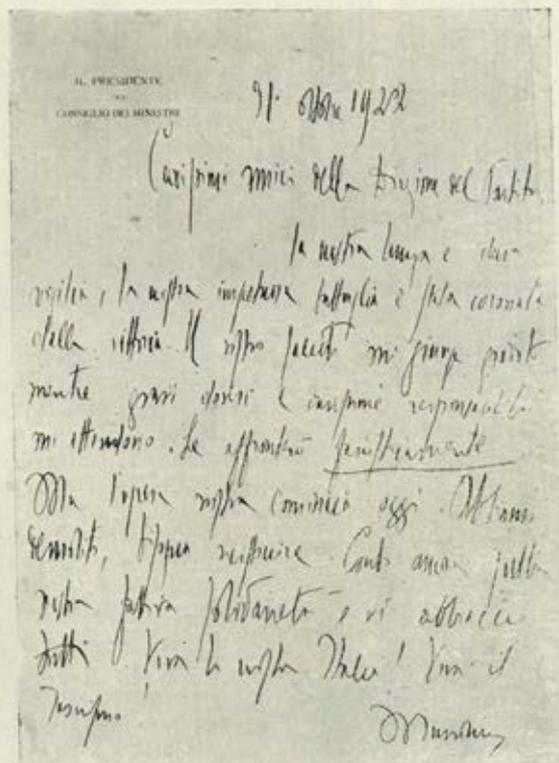 IL PRESIDENTE
DEL
CONSIGLIO DEI MINISTRI
31 ottobre 1922
Carissimi amici della Direzione del Partito,
la nostra lunga e dura
vigilia, la nostra impetuosa battaglia è stata coronata
dalla vittoria. Il vostro saluto mi giunge gradito
mentre gravi doveri e responsabilità
mi attendono. Le affronterò fascisticamente
Ma l'opera nostra comincia oggi. Abbiamo
demolito, bisogna ricostruire. Conto ancora sulla
vostra fattiva solidarietà e vi abbraccio
tutti. Viva la nostra Italia! Viva il
Fascismo!
Mussolini